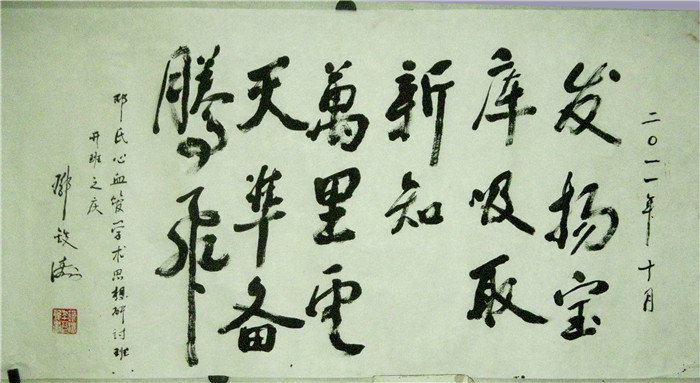 二〇一一年十月
发扬宝
库吸取
新知
萬里雲
天準备
騰飛
邓氏心血管学术思想研讨班
开班之庆
鄧铁涛